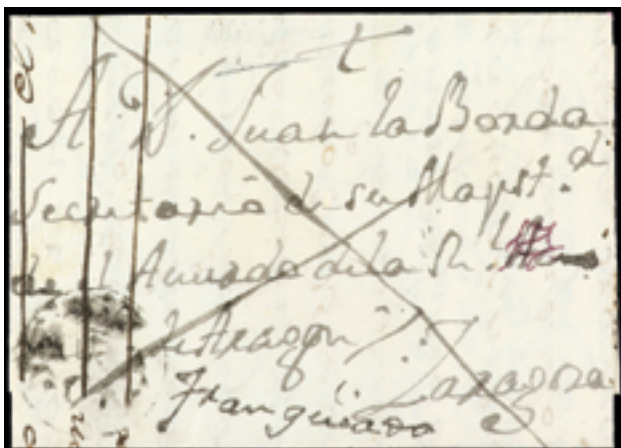 A D. Juan la Borda
Secretario de su Magst.d
de el Acuerdo de la Rl.
de Aragon
Zaragoza
Franqueado